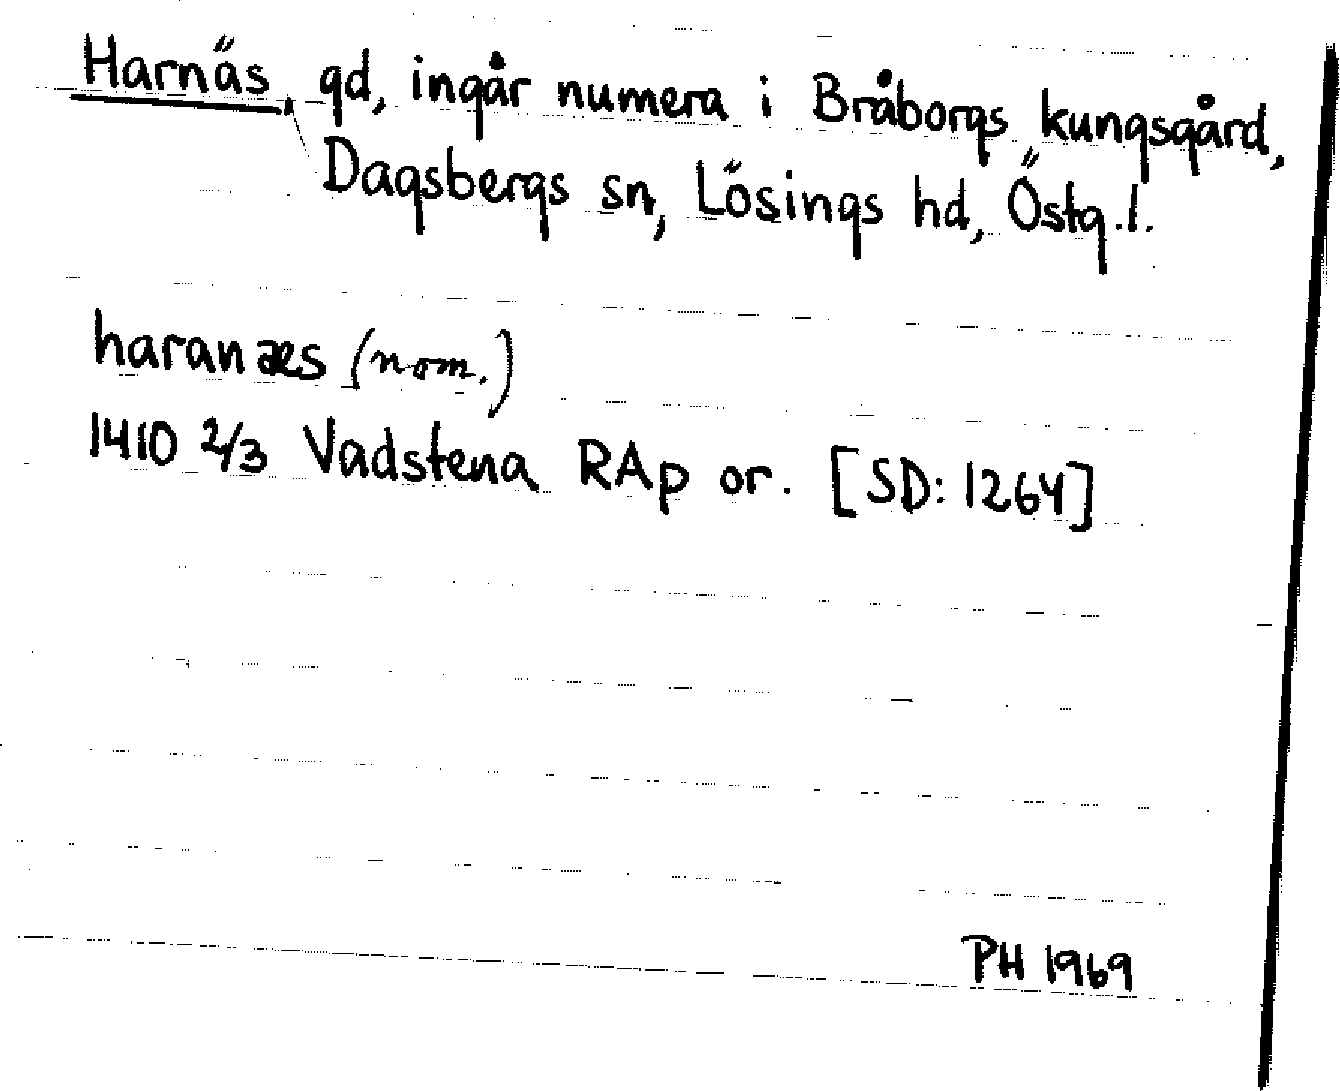 Harnäs, gd, ingår numera i Bråborgs kungsgård,
Dagsbergs sn, Lösings hd, Östg.l.
haranæs (nom.)
1410 2/3 Vadstena RAp or. [SD: 1264]
PH 1969